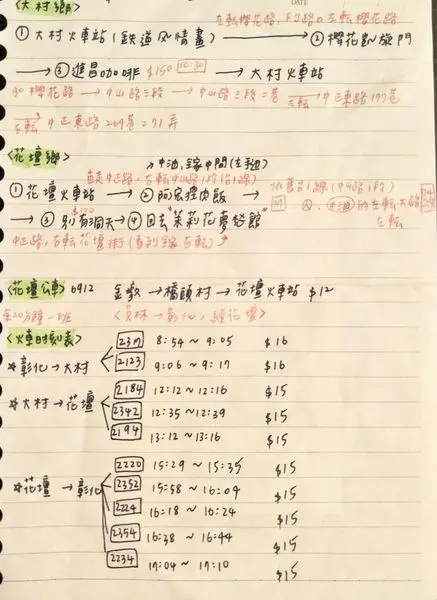 DATE
<大村鄉> 左轉櫻花路,下個路口左轉櫻花路
① 大村火車站 (鐵道风情畫) → ② 櫻花凱旋門
→ ③ 進昌咖啡 $150 10:30 → 大村火車站
櫻花路 → 中山路三段 → 中山路三段二巷 左轉 → 中正東路177巷
左轉 中正東路269巷 71弄
<花壇鄉> 中油、中間(左手边)
直走中正路,左轉中山路1段
① 花壇火車站 → ② 阿宏焢肉飯 → (中山路1段)
→ ③ 別有洞天 → ④ 回去"茉莉花夢想館" M 的左轉 左轉
中正路,右轉花壇街 (右轉)
<花壇公車> 6912 金墩 → 橋頭村 → 花壇火車站 $12
20分鐘一班 <員林 → 彰化,經花壇>
<火車時刻表>
☆彰化 → 大村 8:54 ~ 9:05 $16
2123 9:06 ~ 9:17 $16
☆大村 → 花壇 2184 12:12 ~ 12:16 $15
2342 12:35 ~ 12:39 $15
2194 13:12 ~ 13:16 $15
☆花壇 → 彰化 2220 15:29 ~ 15:35 $15
2352 15:58 ~ 16:04 $15
2224 16:18 ~ 16:24 $15
2354 16:38 ~ 16:44 $15
2234 17:04 ~ 17:10 $15